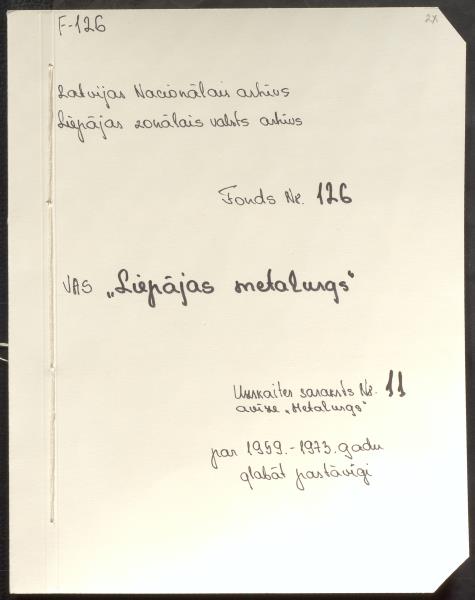 F-126
2x
Latvijas Nacionālais arhīvs
Liepājas zonālais valsts arhīvs
Fonds Nr. 126
VAS „Liepājas metalurgs"
Uzskaites saraksts Nr. 11
avīze „Metalurgs"
par 1959.-1973. gadu
glabāt pastāvīgi